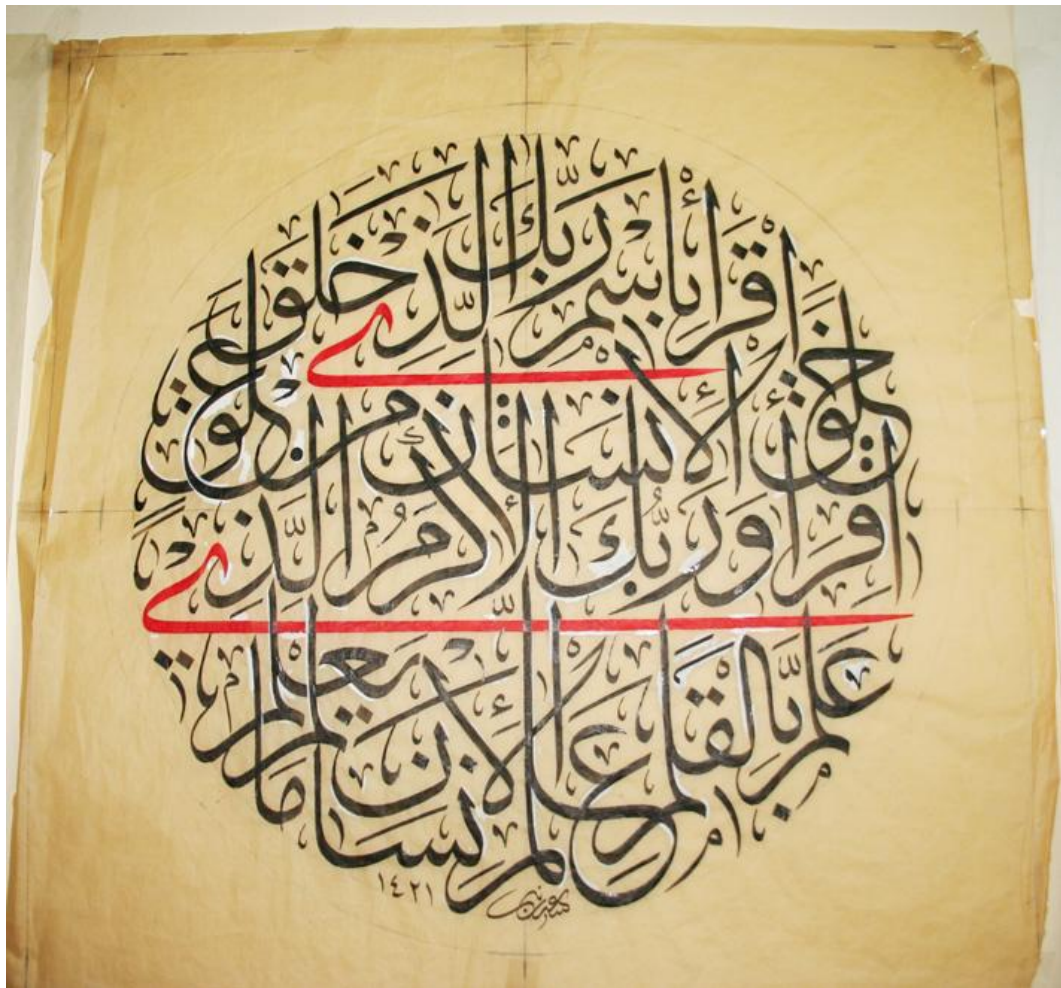 اقْرَأْ بِاسْمِ رَبِّكَ الَّذِي خَلَقَ
خَلَقَ الْإِنسَانَ مِنْ عَلَقٍ
اقْرَأْ وَرَبُّكَ الْأَكْرَمُ الَّذِي
عَلَّمَ بِالْقَلَمِ عَلَّمَ الْإِنسَانَ مَا لَمْ يَعْلَمْ
١٤٢١